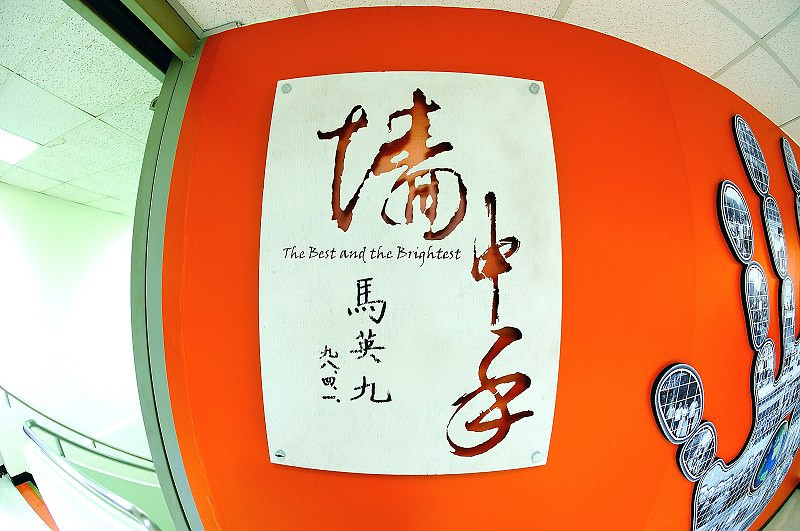 中手
The Best and the Brightest
馬英九
九八.四.一.